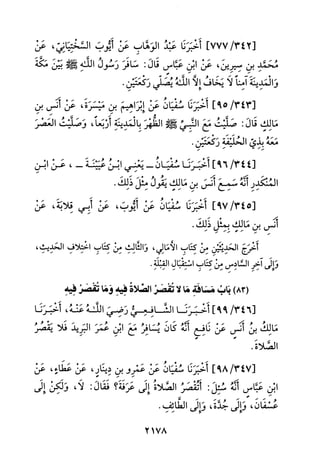 [٧٧٧/٣٤٢] أَخْبَرَنَا عَبْدُ الوَهَّابِ عَنْ أَيُّوبَ السَّخْتِيَانِيّ، عَنْ
مُحَمَّدِ بنِ سِيرِينَ، عَنْ ابْنِ عَبَّاسٍ قَالَ: سَافَرَ رَسُولُ اللَّهِ ﷺ بَيْنَ مَكَّةَ
وَالْمَدِينَةَ آمِناً لَا يَخَافُ إِلاَّ اللَّهَ يُصَلِّي رَكْعَتَيْنِ.
[٩٥/٣٤٣] أَخْبَرَنَا سُفْيَانُ عَنْ إِبْرَاهِيمَ بنِ مَيْسَرَةَ، عَنْ أَنَسِ بنِ
مَالِكٍ قَالَ: صَلَّيْتُ مَعَ النَّبِيِّ ﷺ الظُّهْرَ بِالْمَدِينَةِ أَرْبَعاً، وَصَلَّيْتُ العَصْرَ
مَعَهُ بِذِي الحُلَيْفَةِ رَكْعَتَيْنِ.
[٩٦/٣٤٤] أَخْبَرَنَا سُفْيَانُ - يَعْنِي ابْنُ عُيَيْنَةَ -، عَنْ ابْنِ
المُنْكَدِرِ أَنَّهُ سَمِعَ أَنَسَ بنِ مَالِكٍ يَقُولُ مِثْلَ ذَلِكَ.
[٩٧/٣٤٥] أَخْبَرَنَا سُفْيَانُ عَنْ أَيُّوبَ، عَنْ أَبِي قِلَابَةَ، عَنْ
أَنَسِ بنِ مَالِكٍ بِمِثْلِ ذَلِكَ.
أَخْرَجَ الحَدِيثَيْنِ مِنْ كِتَابِ الأَمَالِي، وَالثَّالِثَ مِنْ كِتَابِ اخْتِلَافِ الحَدِيثِ،
وَإِلَى آخِرِ السَّادِسِ مِنْ كِتَابِ اسْتِقْبَالِ القِبْلَةِ.
(٨٣) بَابُ مَسَافَةِ مَا لَا تُقْصَرُ الصَّلَاةُ فِيهِ وَمَا تُقْصَرُ فِيهِ
[٩٩/٣٤٦] أَخْبَرَنَا الشَّافِعِيُّ رَضِيَ اللَّهُ عَنْهُ، أَخْبَرَنَا
مَالِكُ بنُ أَنَسٍ عَنْ نَافِعٍ أَنَّهُ كَانَ يُسَافِرُ مَعَ ابْنِ عُمَرَ البَرِيدَ فَلَا يَقْصُرُ
الصَّلَاةَ.
[٩٨/٣٤٧] أَخْبَرَنَا سُفْيَانُ عَنْ عَمْرِو بنِ دِينَارٍ، عَنْ عَطَاءٍ، عَنْ
ابْنِ عَبَّاسٍ أَنَّهُ سُئِلَ: أَتُقْصَرُ الصَّلَاةُ إِلَى عَرَفَةَ؟ فَقَالَ: لَا، وَلَكِنْ إِلَى
عُسْفَانَ، وَإِلَى جُدَّةَ، وَإِلَى الطَّائِفِ.
٢١٧٨